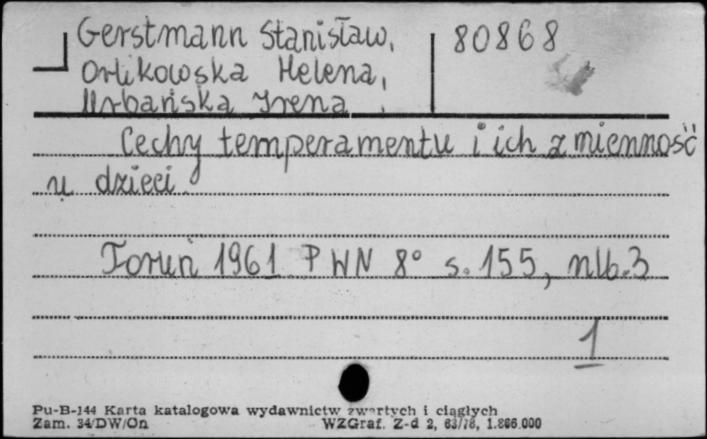 Gerstmann Stanisław, 80868
Orlikowska Helena,
Urbańska Irena
Cechy temperamentu i ich zmienność
u dzieci
Toruń 1961 PWN 8° s. 155, nlb. 3
1
Pu-B-144 Karta katalogowa wydawnictw zwartych i ciągłych
Zam. 34/DW/On WZGraf. Z-d 2, 63/78, 1.866.000